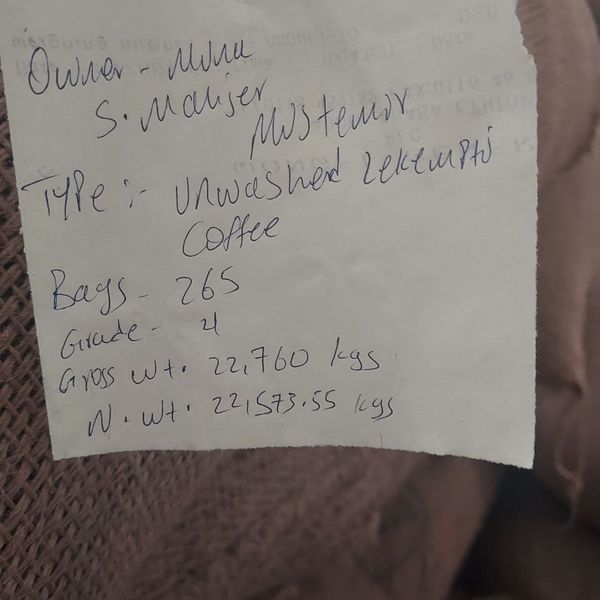 Owner - Muna
S. Maliger
Mustemir
Type :- Unwashed Lekempti
Coffee
Bags - 265
Grade - 4
Gross wt. 22,760 kgs
N. wt. 22,573.55 kgs